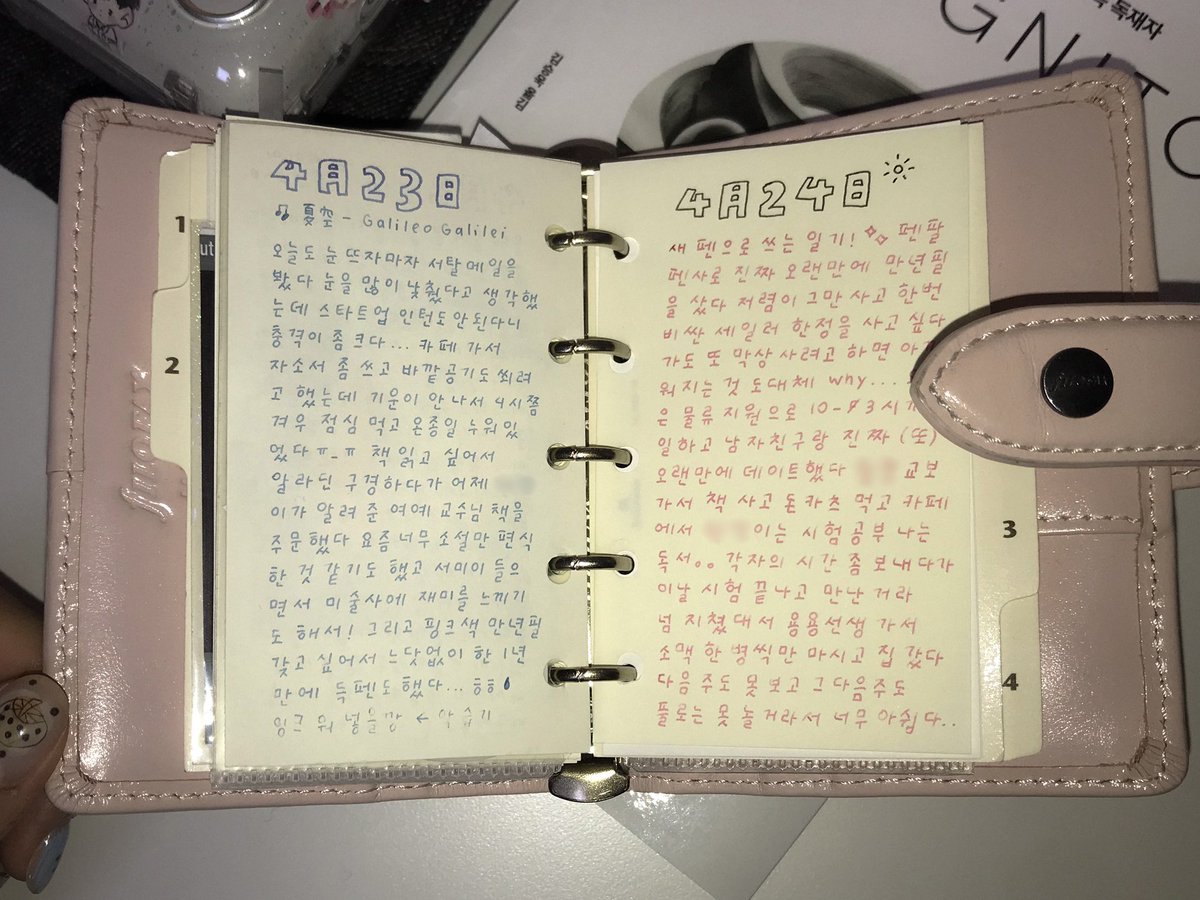 독재자
GNITO
ut
1
2
4月23日
夏空 - Galileo Galilei
오늘도 눈 뜨자마자 서탈메일을
봤다 눈을 많이 낮췄다고 생각했
는데 스타트업 인턴도 안된다니
충격이 좀 크다... 카페 가서
자소서 좀 쓰고 바깥공기도 쐬려
고 했는데 기운이 안 나서 4시쯤
겨우 점심 먹고 온종일 누워있
었다 ㅠ_ㅠ 책 읽고 싶어서
알라딘 구경하다가 어제
이가 알려 준 여예 교수님 책을
주문했다 요즘 너무 소설만 편식
한 것 같기도 했고 서미이 들으
면서 미술사에 재미를 느끼기
도 해서! 그리고 핑크색 만년필
갖고 싶어서 느닷없이 한 1년
만에 득펜도 했다... ㅎㅎ
잉크 뭐 넣을깡 ←
4月24日
새 펜으로 쓰는 일기! 펜팔
펜사로 진짜 오랜만에 만년필
을 샀다 저렴이 그만 사고 한번
비싼 세일러 한정을 사고 싶다
가도 또 막상 사려고 하면
워지는 것 도대체 why....
은 물류 지원으로 10-73시
일하고 남자친구랑 진짜 (또)
오랜만에 데이트했다 교보
가서 책 사고 돈카츠 먹고 카페
에서 이는 시험공부 나는
독서。。 각자의 시간 좀 보내다가
이날 시험 끝나고 만난 거라
넘 지쳤대서 용용선생 가서
소맥 한 병씩만 마시고 집 갔다
다음주도 못 보고 그 다음주도
플로는 못 놀 거라서 너무 아쉽다..
3
4